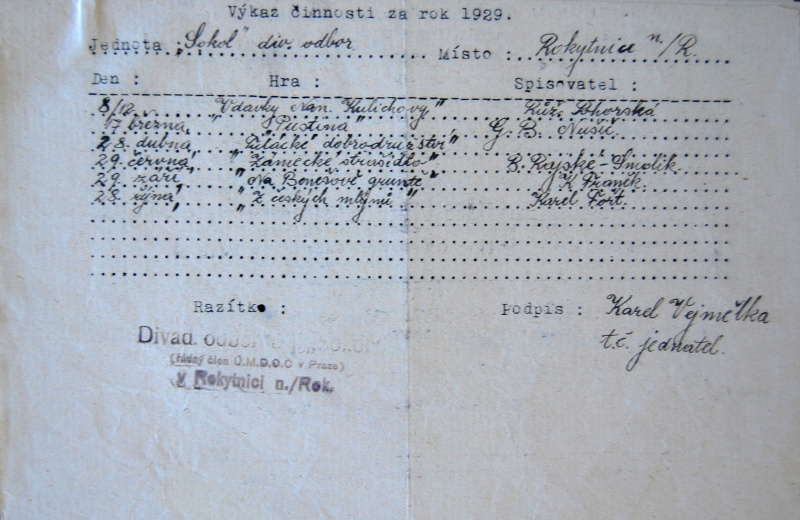 Výkaz činnosti za rok 1929.
Jednota: „Sokol" div. odbor Místo : Rokytnice n/R.
Den : Hra : Spisovatel :
8/12. „Vdavky Kulichovy" Růž. Pohorská
17 března „Pustina"
28. dubna dobrodružství" G. B. Nušič.
29. června „Zámecké strašidlo" B. Rajské-Smolík
29. září „Na Benešově gruntě" K. Franěk.
28. října „Z českých mlýnů" Karel Fořt.
Razítko : Podpis : Karel Vejmělka
t.č. jednatel.
Divad. odbor
(řádný člen Ú.M.D.O.C v Praze)
v Rokytnici n./Rok.